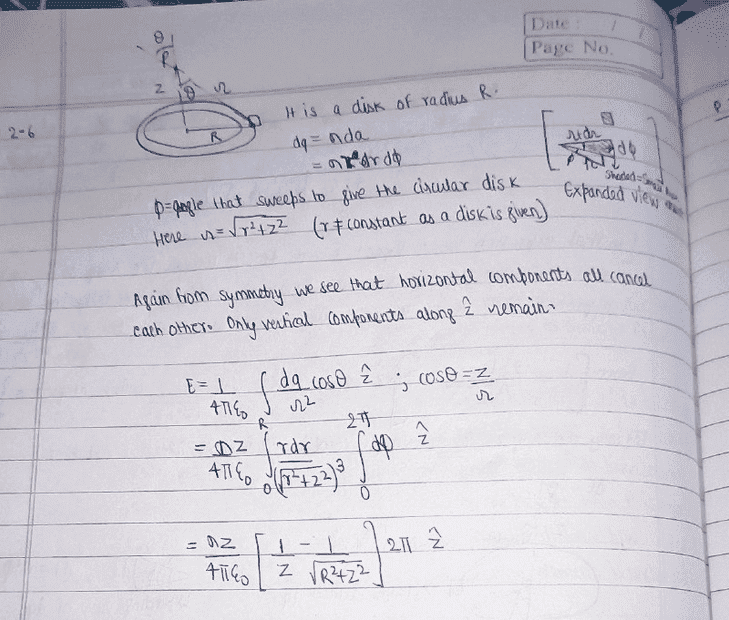 Date : / /
Page No.
θ
R
z θ r
R
2-6
It is a disk of radius R.
dq = σda
= σr dr dϕ
dϕ
Expanded view
ϕ = angle that sweeps to give the circular disk
Here r = √r²+z² (r ≠ constant as a disk is given)
Again from symmetry we see that horizontal components all cancel
each other. Only vertical components along ẑ remain.
E = 1/4πε₀ ∫ dq cosθ/r² ẑ ; cosθ = z/r
= σz/4πε₀ ∫₀ᴿ rdr/(√r²+z²)³ ∫₀²ᵖⁱ dϕ ẑ
= σz/4πε₀ [1/z - 1/√R²+z²] 2π ẑ